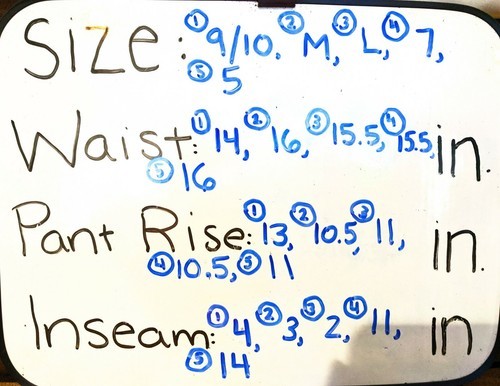 Size: ① 9/10, ② M, ③ L, ④ 7,
⑤ 5
Waist: ① 14, ② 16, ③ 15.5, ④ 15.5, in.
⑤ 16
Pant Rise: ① 13, ② 10.5, ③ 11, in.
④ 10.5, ⑤ 11
Inseam: ① 4, ② 3, ③ 2, ④ 11, in
⑤ 14